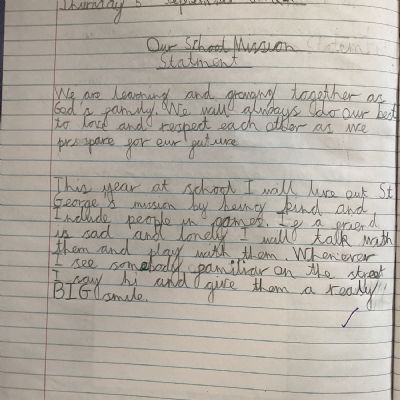 Thursday 5 September
Our School Mission
Statment
We are learning and growing together as
God's family. We will always do our best
to love and respect each other as we
prepare for our future
This year at school I will live out St
George's mission by being kind and
Include people in games. If a friend
is sad and lonely I will talk with
them and play with them. Whenever
I see somebody familiar on the street
I say hi and give them a really
BIG smile.